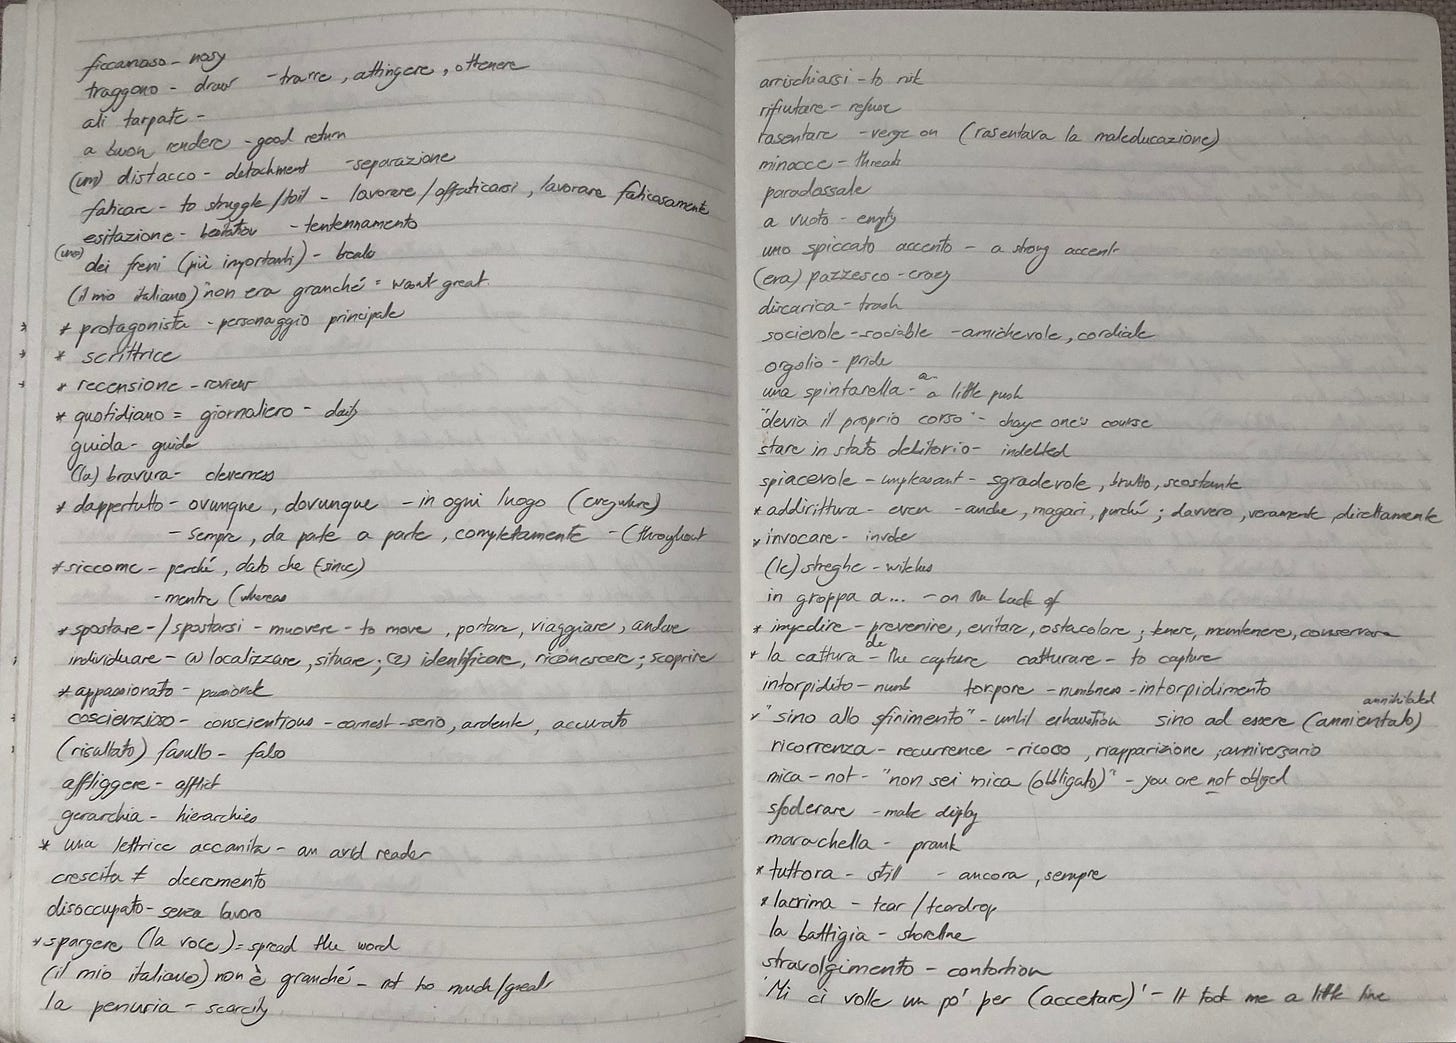 ficcanaso - nosy
traggono - draw - trarre, attingere, ottenere
ali tarpate -
a buon rendere - good return
(un) distacco - detachment - separazione
faticare - to struggle/toil - lavorare/affaticarsi, lavorare faticosamente
esitazione - hesitation - tentennamento
(uno) dei freni (più importanti) -
(il mio italiano) "non era granché = wasnt great.
* protagonista - personaggio principale
* scrittrice
* recensione - review
* quotidiano = giornaliero - daily
guida - guide
(la) bravura - cleverness
* dappertutto - ovunque, dovunque - in ogni luogo (everywhere)
- sempre, da parte a parte, completamente - (throughout
* siccome - perché, dato che (since)
- mentre (whereas
* spostare - / spostarsi - muovere - to move, portare, viaggiare, andare
individuare - (1) localizzare, situare; (2) identificare, riconoscere; scoprire
* appassionato - passionate
coscienzioso - conscientious - earnest - serio, ardente, accurato
(risultato) fasullo - falso
affliggere - afflict
gerarchia - hierarchies
* una lettrice accanita - an avid reader
crescita ≠ decremento
disoccupato - senza lavoro
* spargere (la voce) = spread the word
(il mio italiano) non è granché - not too much/great
la penuria - scarcity
arrischiarsi - to risk
rifiutare - refuse
rasentare - verge on (rasentava la maleducazione)
minacce - threats
paradossale
a vuoto - empty
uno spiccato accento - a strong accent
(era) pazzesco - crazy
discarica - trash
socievole - sociable - amichevole, cordiale
orgolio - pride
una spintarella - a little push
"devia il proprio corso" - change one's course
stare in stato debitorio - indebted
spiacevole - unpleasant - sgradevole, brutto, scostante
* addirittura - even - anche, magari, purché; davvero, veramente, direttamente
* invocare - invoke
(le) streghe - witches
in groppa a... - on the back of
* impedire - prevenire, evitare, ostacolare; tenere, mantenere, conservare
* la cattura - the capture catturare - to capture
intorpidito - numb torpore - numbness - intorpidimento
annihilated
* "sino allo sfinimento" - until exhaustion sino ad essere (annientato)
ricorrenza - recurrence - ricorso, riapparizione, anniversario
mica - not - "non sei mica (obbligato)" - you are not obliged
sfoderare - make display
marachella - prank
* tuttora - still - ancora, sempre
* lacrima - tear/teardrop
la battigia - shoreline
stravolgimento - contortion
'Mi ci volle un po' per (accetare)' - It took me a little time